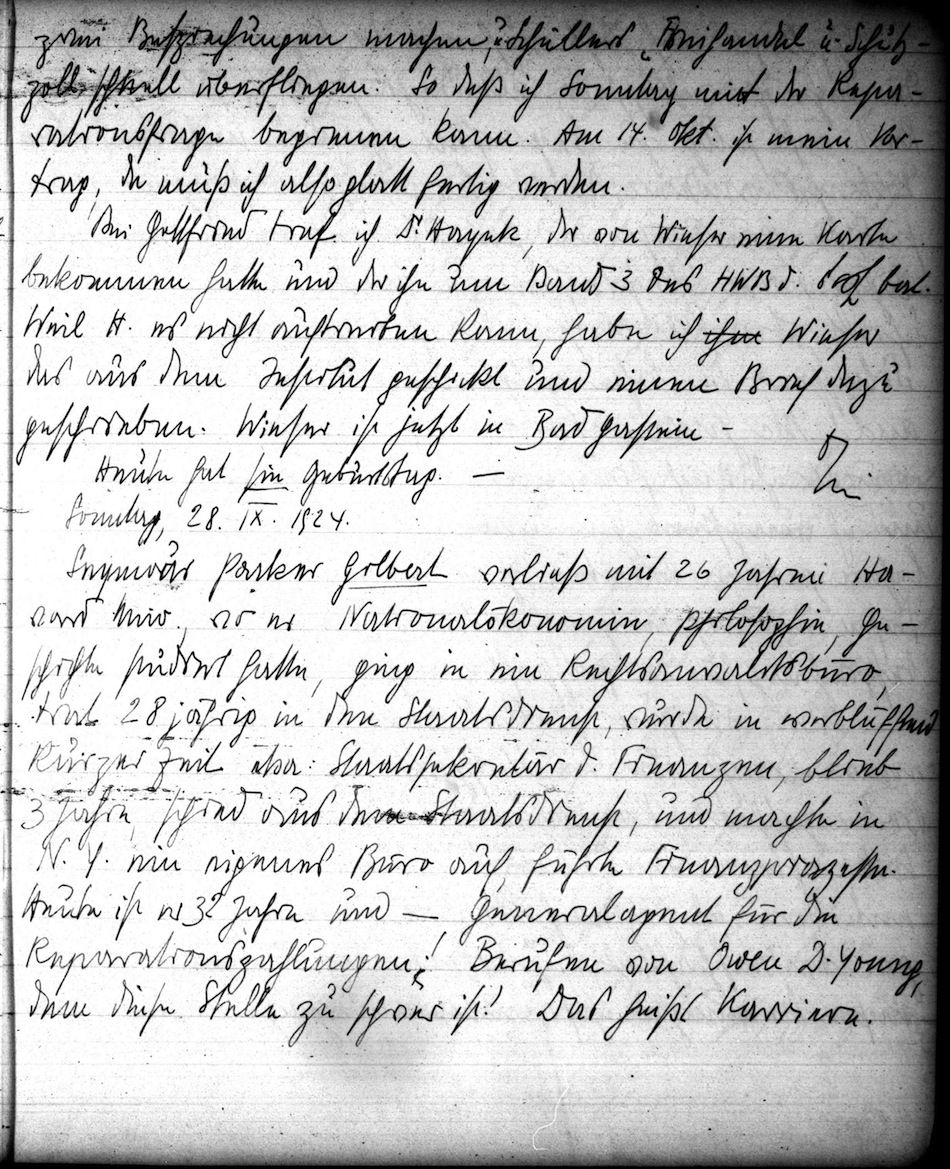 zwei Besprechungen machen, u. Schüllers „Freihandel u. Schutz-
zoll schnell überfliegen. So daß ich Sonntag mit der Repa-
rationsfrage beginnen kann. Am 14. Okt. ist mein Vor-
trag, da muß ich also glatt fertig werden.
Bei Gottfried traf ich Dr. Hayek, der von Wieser eine Karte
bekommen hatte und der ihn um Band 3 des HWB d. bat.
Weil H. es nicht auftreiben kann, habe ich ihm Wieser
das aus dem Institut geschickt und einen Brief dazu
geschrieben. Wieser ist jetzt in Bad Gastein –
Heute hat sie Geburtstag. —
Sonntag, 28. IX. 1924.
Seymour Parker Gilbert verließ mit 26 Jahren Ha-
vard Univ., wo er Nationalökonomie, Philosophie, Ge-
schichte studiert hatte, ging in ein Rechtsanwaltsbüro,
trat 28 jährig in den Staatsdienst, wurde in verblüffend
kurzer Zeit Staatssekretär d. Finanzen, blieb
3 Jahre, schied aus dem Staatsdienst, und machte in
N. Y. ein eigenes Büro auf, führte Finanzprozesse.
Heute ist er 32 Jahre und — Generalagent für die
Reparationszahlungen! Berufen von Owen D. Young,
dem diese Stelle zu schwer ist! Das heißt Karriere.